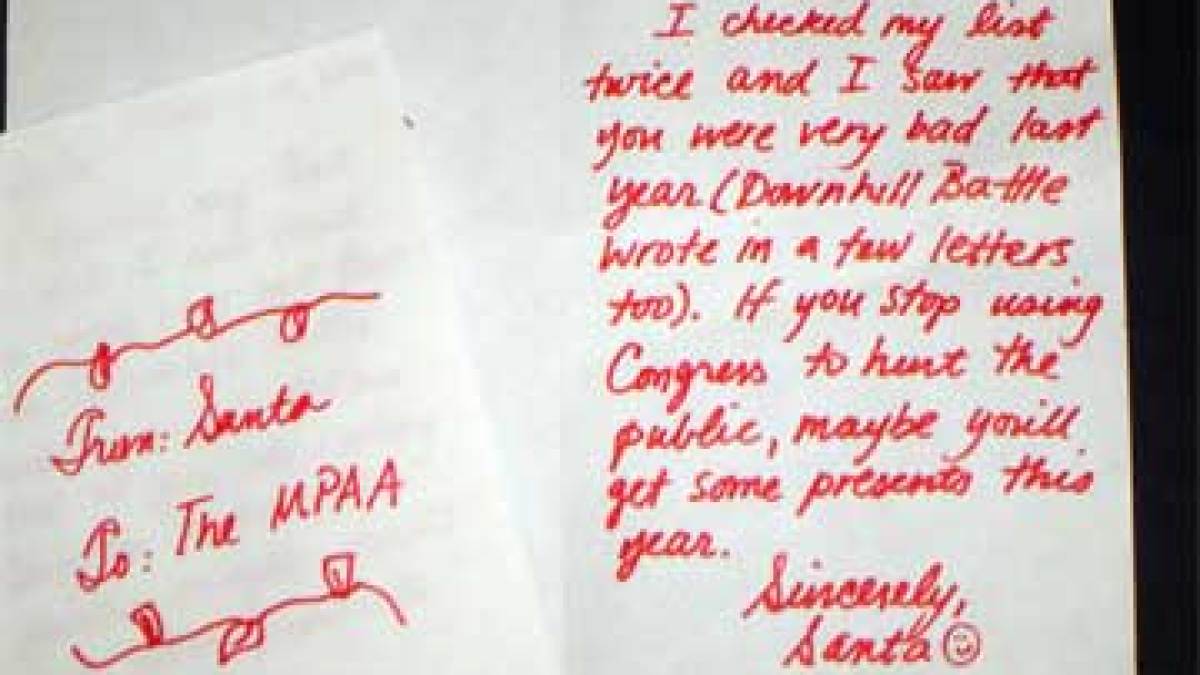 From: Santa
To: The MPAA
I checked my list
twice and I saw that
you were very bad last
year (Downhill Battle
wrote in a few letters
too). If you stop using
Congress to hurt the
public, maybe you'll
get some presents this
year.
Sincerely,
Santa